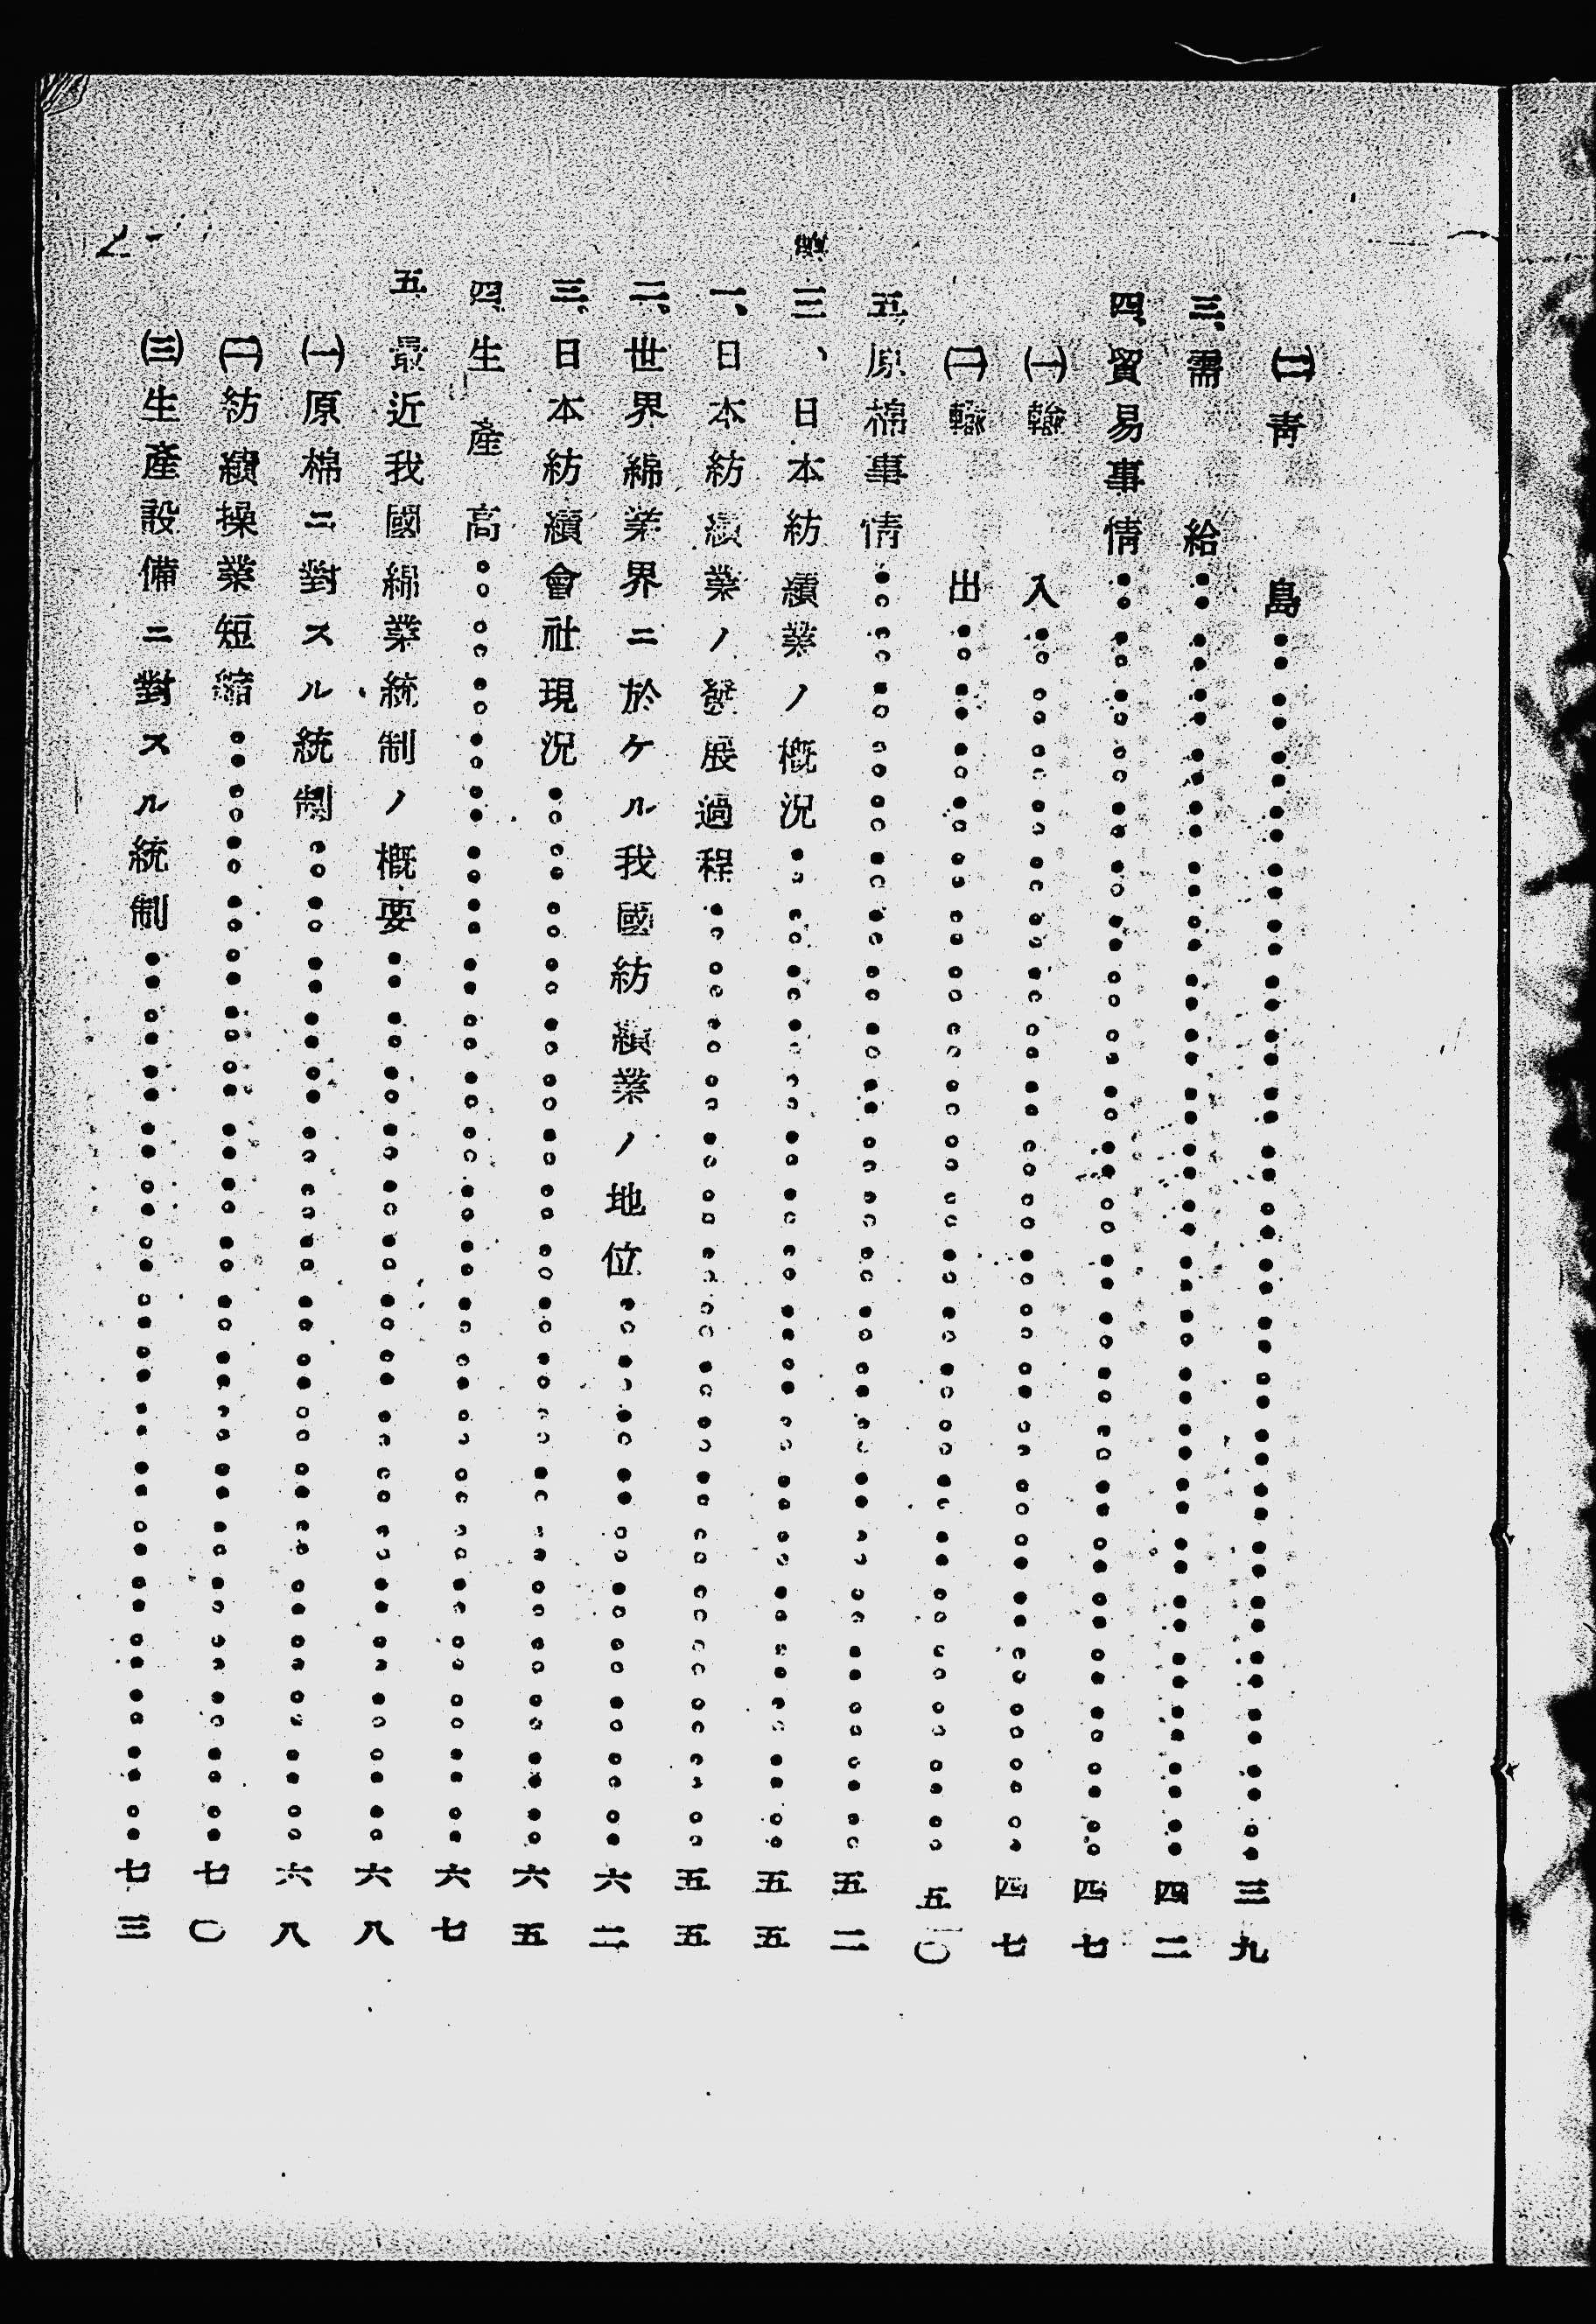 ㈢靑島……………………三九
三、需給……………………四二
四、貿易事情……………………四七
㈠輸入……………………四七
㈡輸出……………………五〇
五、原棉事情……………………五二
三、日本紡績業ノ概況……………………五五
一、日本紡績業ノ發展過程……………………五五
二、世界綿業界ニ於ケル我國紡績業ノ地位……………………六二
三、日本紡績會社現況……………………六五
四、生產高……………………六七
五最近我國綿業統制ノ概要……………………六八
㈠原棉ニ對スル統制……………………六八
㈡紡績操業短縮……………………七〇
㈢生產設備ニ對スル統制……………………七三